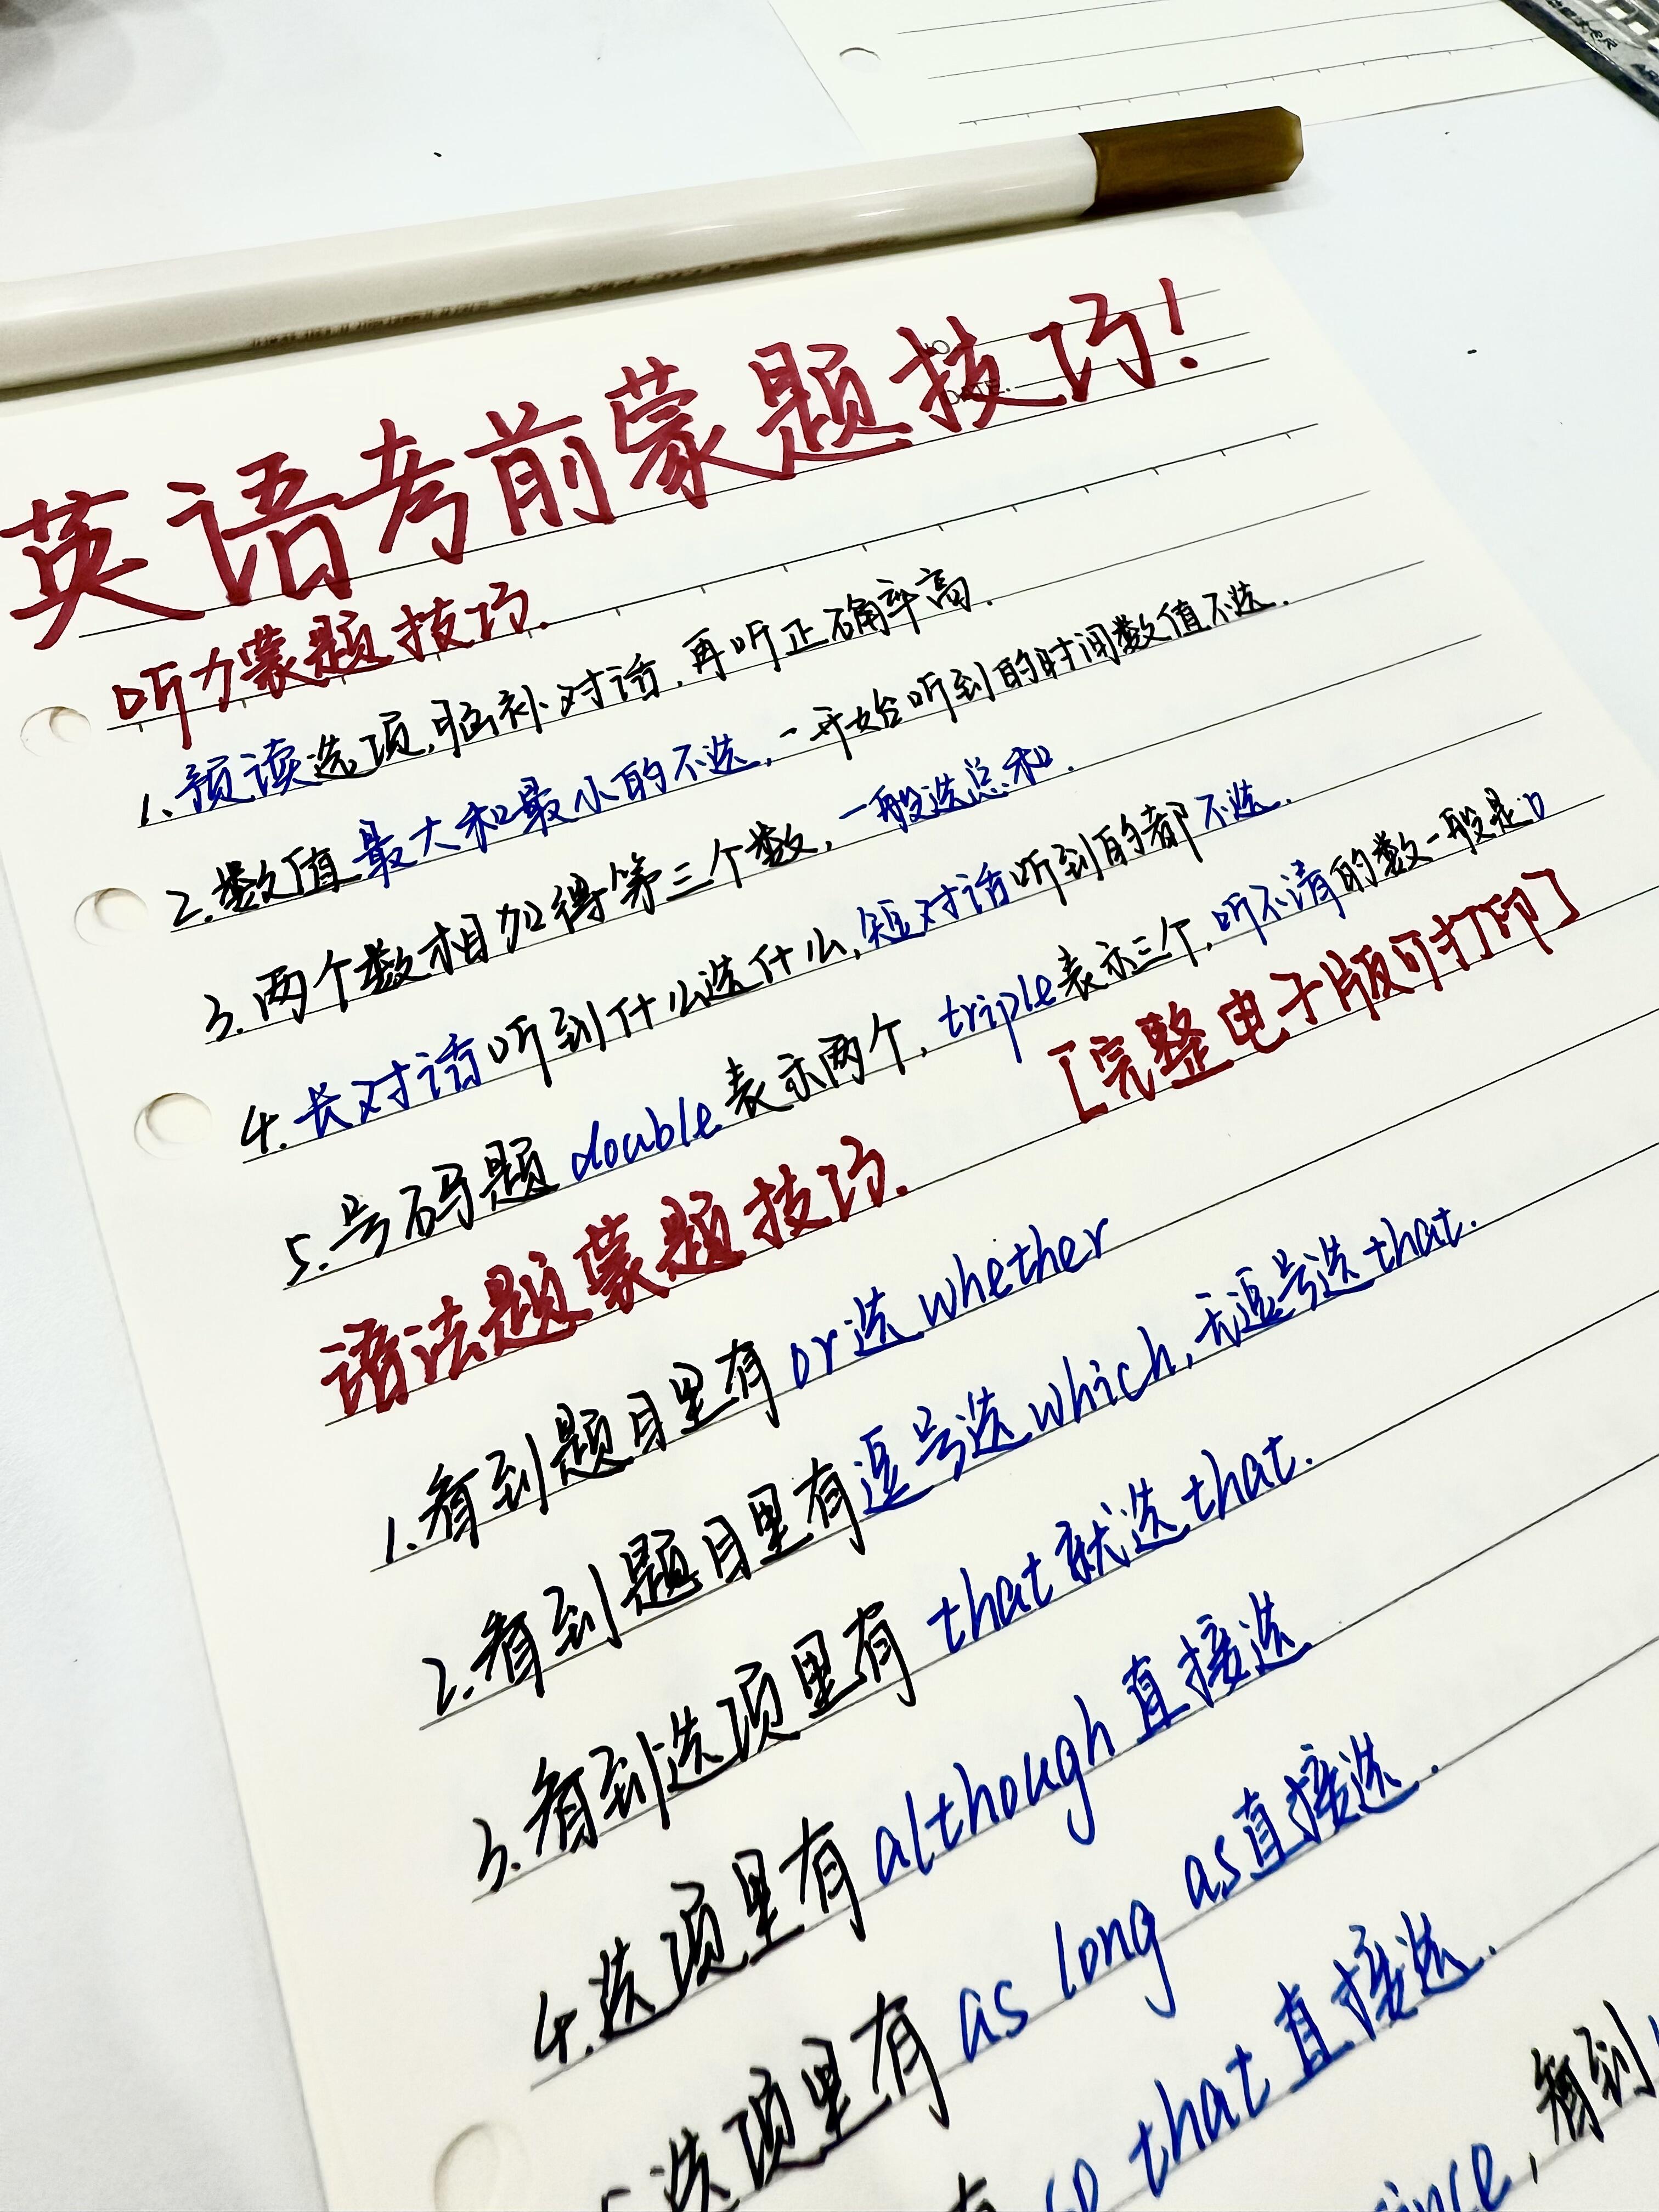 英语考前蒙题技巧!
听力蒙题技巧.
1、预读选项,脑补对话,再听正确率高.
2.数值最大和最小的不选,一开始听到的时间数值不选.
3.两个数相加得第三个数,一般选总和.
4.长对话听到什么选什么,短对话听到的都不选.
5.号码题double表示两个,triple表示三个,听不清的数一般是0
[完整电子版可打印]
语法题蒙题技巧.
1.看到题目里有or选whether
2.看到题目里有逗号选which,无逗号选that.
3.看到选项里有that就选that.
4.选项里有although直接选
5.选项里有as long as直接选.
有so that直接选.
since,看到